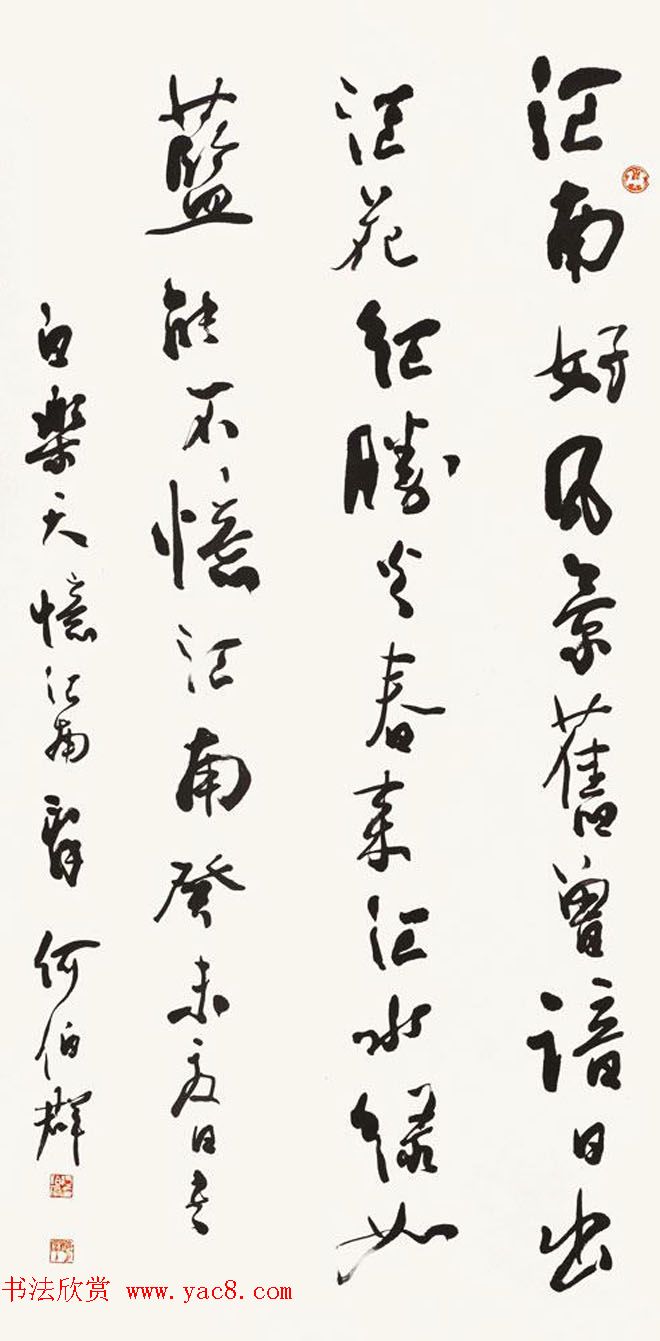 江南好风景旧曾諳日出
江花红勝火春来江水绿如
藍能不憶江南癸未夏日书
白樂天憶江南 何伯群
书法欣赏 www.yac8.com